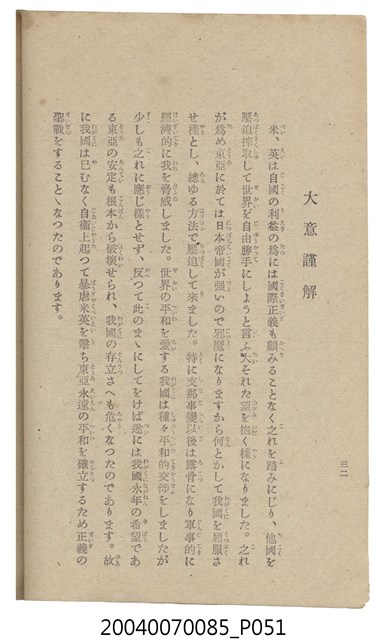 大意謹解
三二
米、英は自國の利益の爲には國際正義も顧みることなく之れを踏みにじり、他國を
壓迫搾取して世界を自由勝手にしようと言ふ大それた望を抱く樣になりました。之れ
が爲め東亞に於ては日本帝國が强いので邪魔になりますから何とかして我國を屈服さ
せ樣とし、總ゆる方法で壓迫して來ました。特に支那事變以後は露骨になり軍事的に
經濟的に我を脅威しました。世界の平和を愛する我國は種々平和的交渉をしましたが
少しも之れに應じ樣とせず、反つて此のまゝにしてをけば遂には我國永年の希望であ
る東亞の安定も根本から破壞せられ、我國の存立さへも危くなつたのであります。故
に我國は已むなく自衞上起つて暴虐米英を擊ち東亞永遠の平和を確立するため正義の
聖戰をすることゝなつたのであります。
20040070085_P051